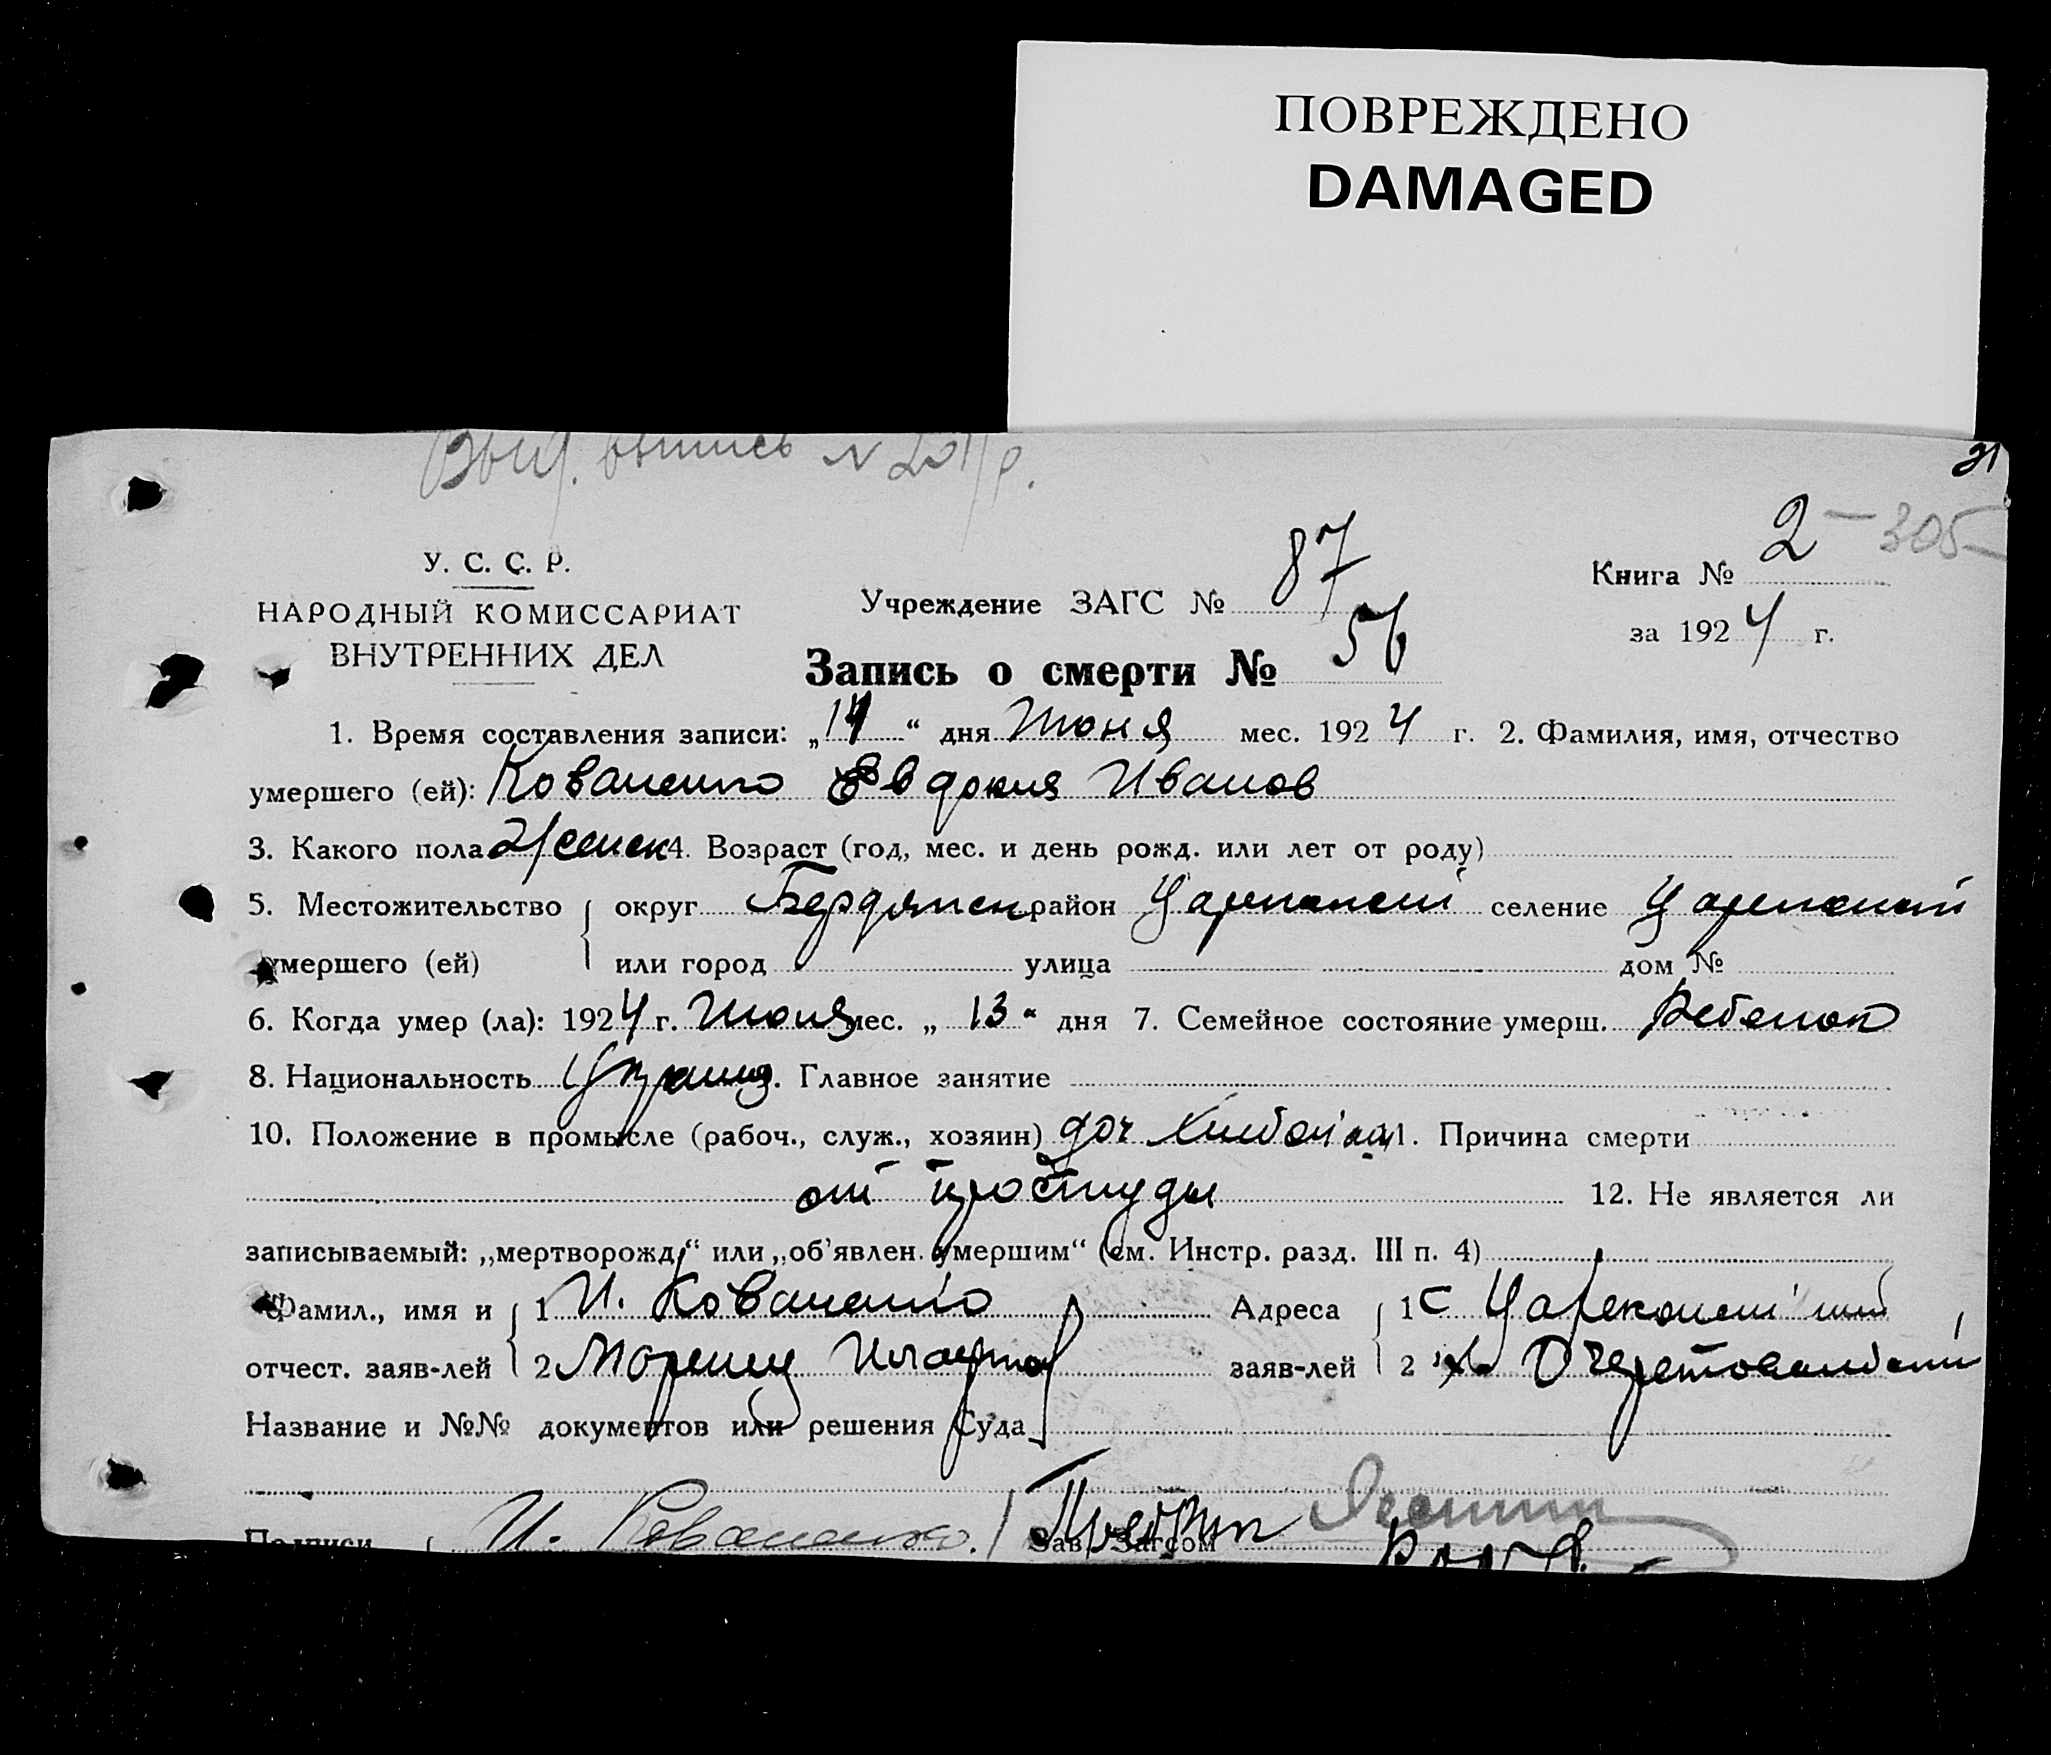 ПОВРЕЖДЕНО
DAMAGED
21
выпись N
2 — 305
У. С. С. Р.
НАРОДНЫЙ КОМИССАРИАТ
ВНУТРЕННИХ ДЕЛ
Учреждение ЗАГС № 87
Книга № 2
за 1924 г.
Запись о смерти № 56
1. Время составления записи: „14“ дня Июня мес. 1924 г. 2. Фамилия, имя, отчество
умершего (ей): Коваленко Евдокия Иванов
3. Какого пола Женск 4. Возраст (год, мес. и день рожд. или лет от роду)
5. Местожительство { округ Бердянск район селение
умершего (ей) или город улица дом №
6. Когда умер (ла): 1924 г. Июня мес. „13“ дня 7. Семейное состояние умерш. Ребенок
8. Национальность Украин 9. Главное занятие
10. Положение в промысле (рабоч., служ., хозяин) доч 11. Причина смерти
от простуды 12. Не является ли
записываемый: „мертворожд.“ или „об’явлен. умершим“ (см. Инстр. разд. III п. 4)
Фамил., имя и { 1 И. Коваленко Адреса { 1 с
отчест. заяв-лей 2 заяв-лей 2
Название и №№ документов или решения Суда
Подписи { И. Коваленко Зав. Загсом